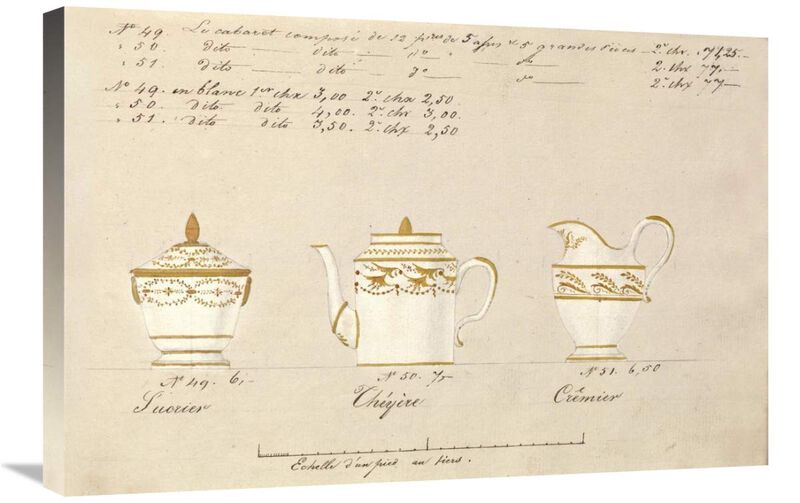 No 49. Le cabaret composé de 12 pces de 5 ass et 5 grandes pièces 2e chx. 71,25.
" 50. dito dito do do 2. chx 77.
" 51. dito dito do do 2e chx 77
No 49. en blanc 1er chx 3,00 2e chx 2,50.
" 50. dito dito 4,00. 2e chx 3,00.
" 51. dito dito 3,50. 2e chx 2,50
No 49. 6,- No 50. 7,- No 51. 6,50
Sucrier Théyère Crêmier
Echelle d'un pied au tiers.